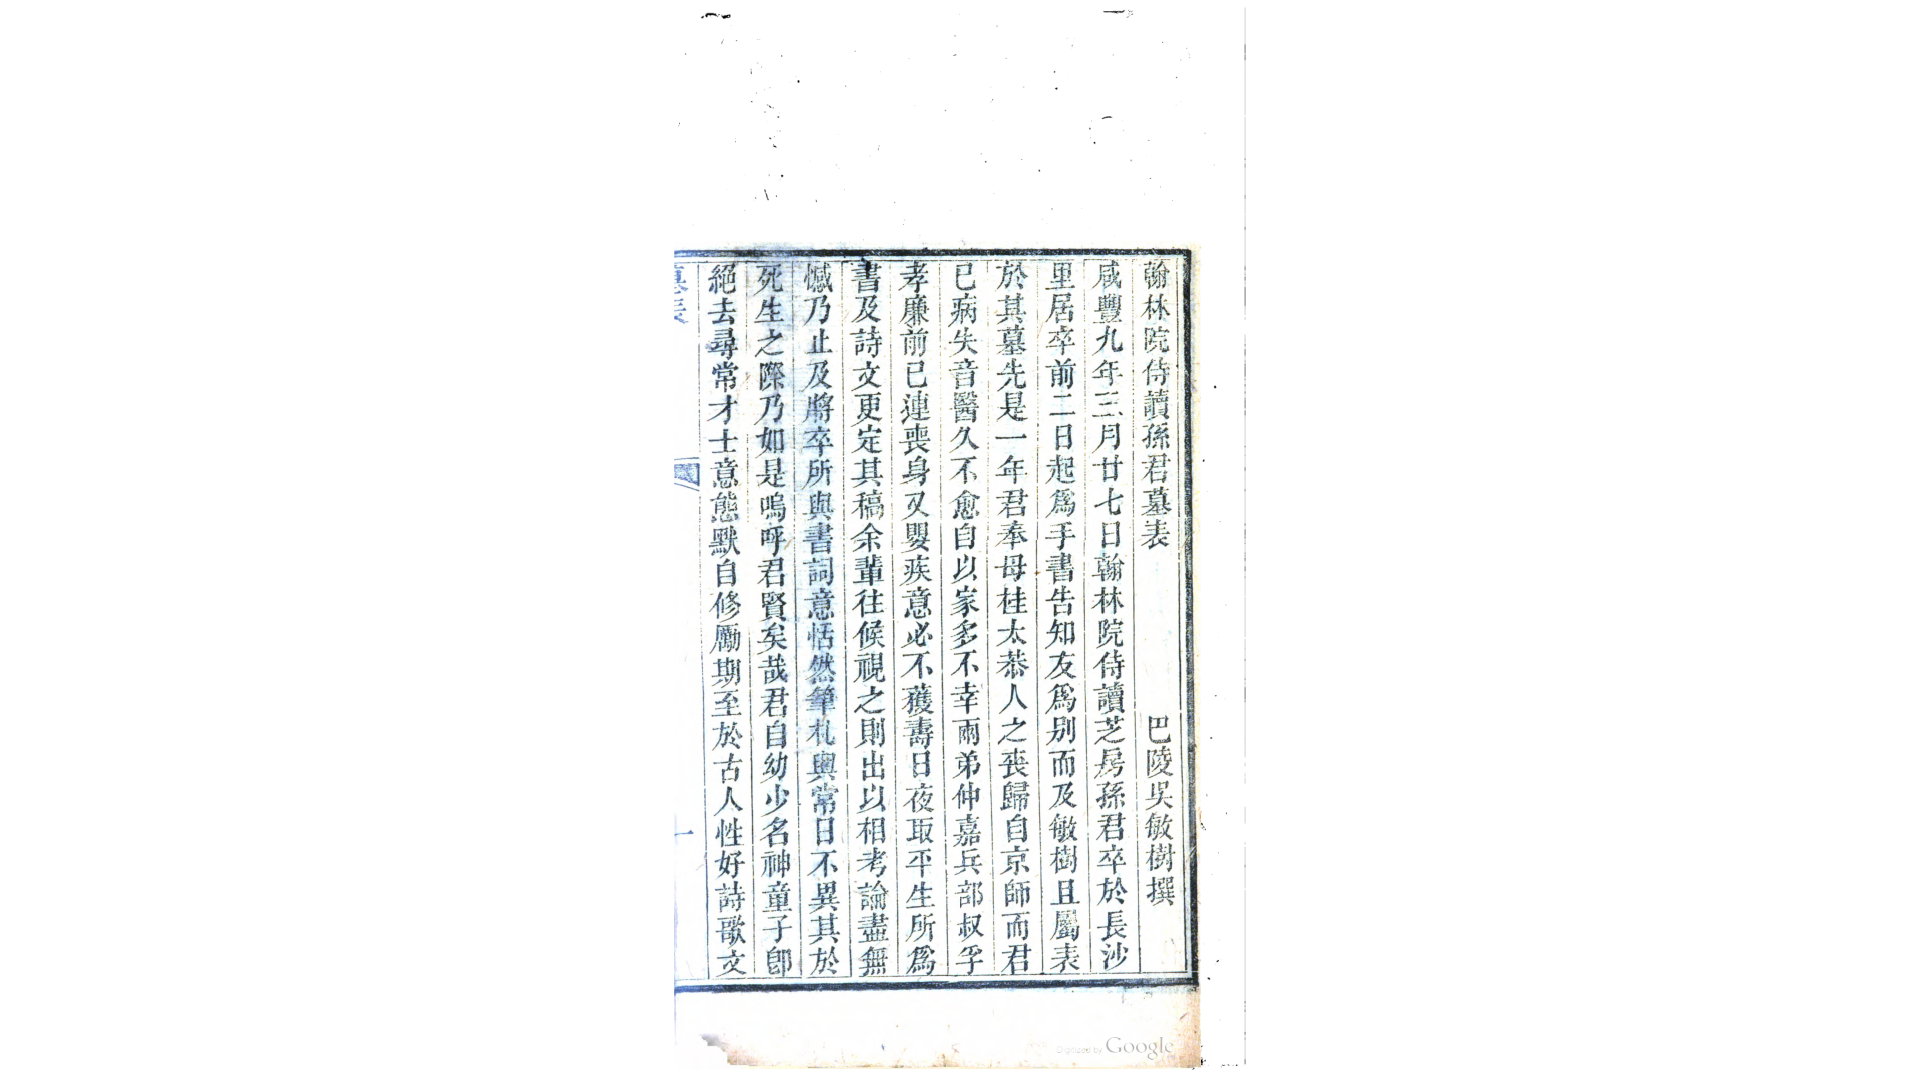 翰林院侍讀孫君墓表
巴陵吳敏樹撰
咸豐九年三月廿七日翰林院侍讀芝房孫君卒於長沙
里居卒前二日起爲手書告知友爲别而及敏樹且屬表
於其墓先是一年君奉母桂太恭人之喪歸自京師而君
已病失音醫久不愈自以家多不幸兩弟仲嘉兵部叔孚
孝廉前已連喪身又嬰疾意必不獲壽日夜取平生所爲
書及詩文更定其稿余輩往候視之則出以相考論盡無
憾乃止及將卒所與書詞意恬然筆札與常日不異其於
死生之際乃如是嗚呼君賢矣哉君自幼少名神童子卽
絕去尋常才士意態默自修勵期至於古人性好詩歌文
墓表
一
Digitized by Google